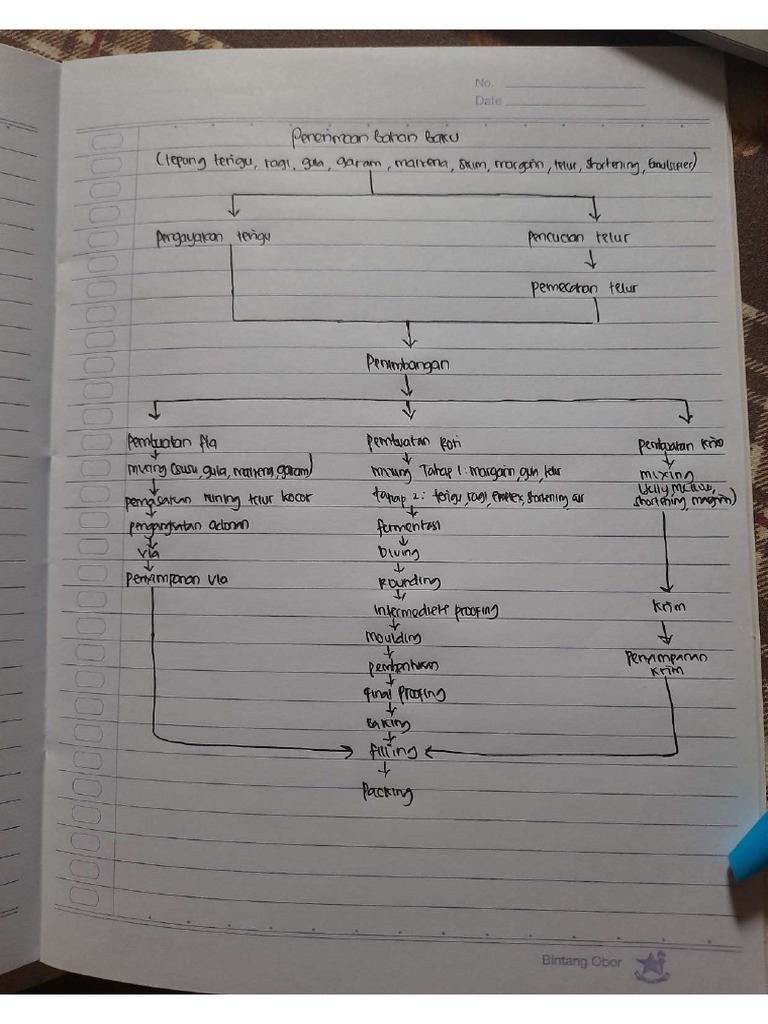 No.
Date
Penerimaan Bahan Baku
(tepung terigu, ragi, gula, garam, maizena, skim, margarin, telur, shortening, Emulsifier)
Pengayakan terigu
Pencucian telur
Pemecahan telur
Penimbangan
Pembuatan fla
Pembuatan Roti
Pembuatan krim
mixing (susu, gula, maizena, garam)
mixing Tahap 1: margarin, gula, telur
mixing
tahap 2: terigu, ragi, shortening air
shortening, margarin)
pengangkatan adonan
fermentasi
vla
Rounding
Penyimpanan vla
Intermediete proofing
krim
moulding
Penyimpanan
krim
pembentukan
final Proofing
Baking
filling
Packing
Bintang Obor